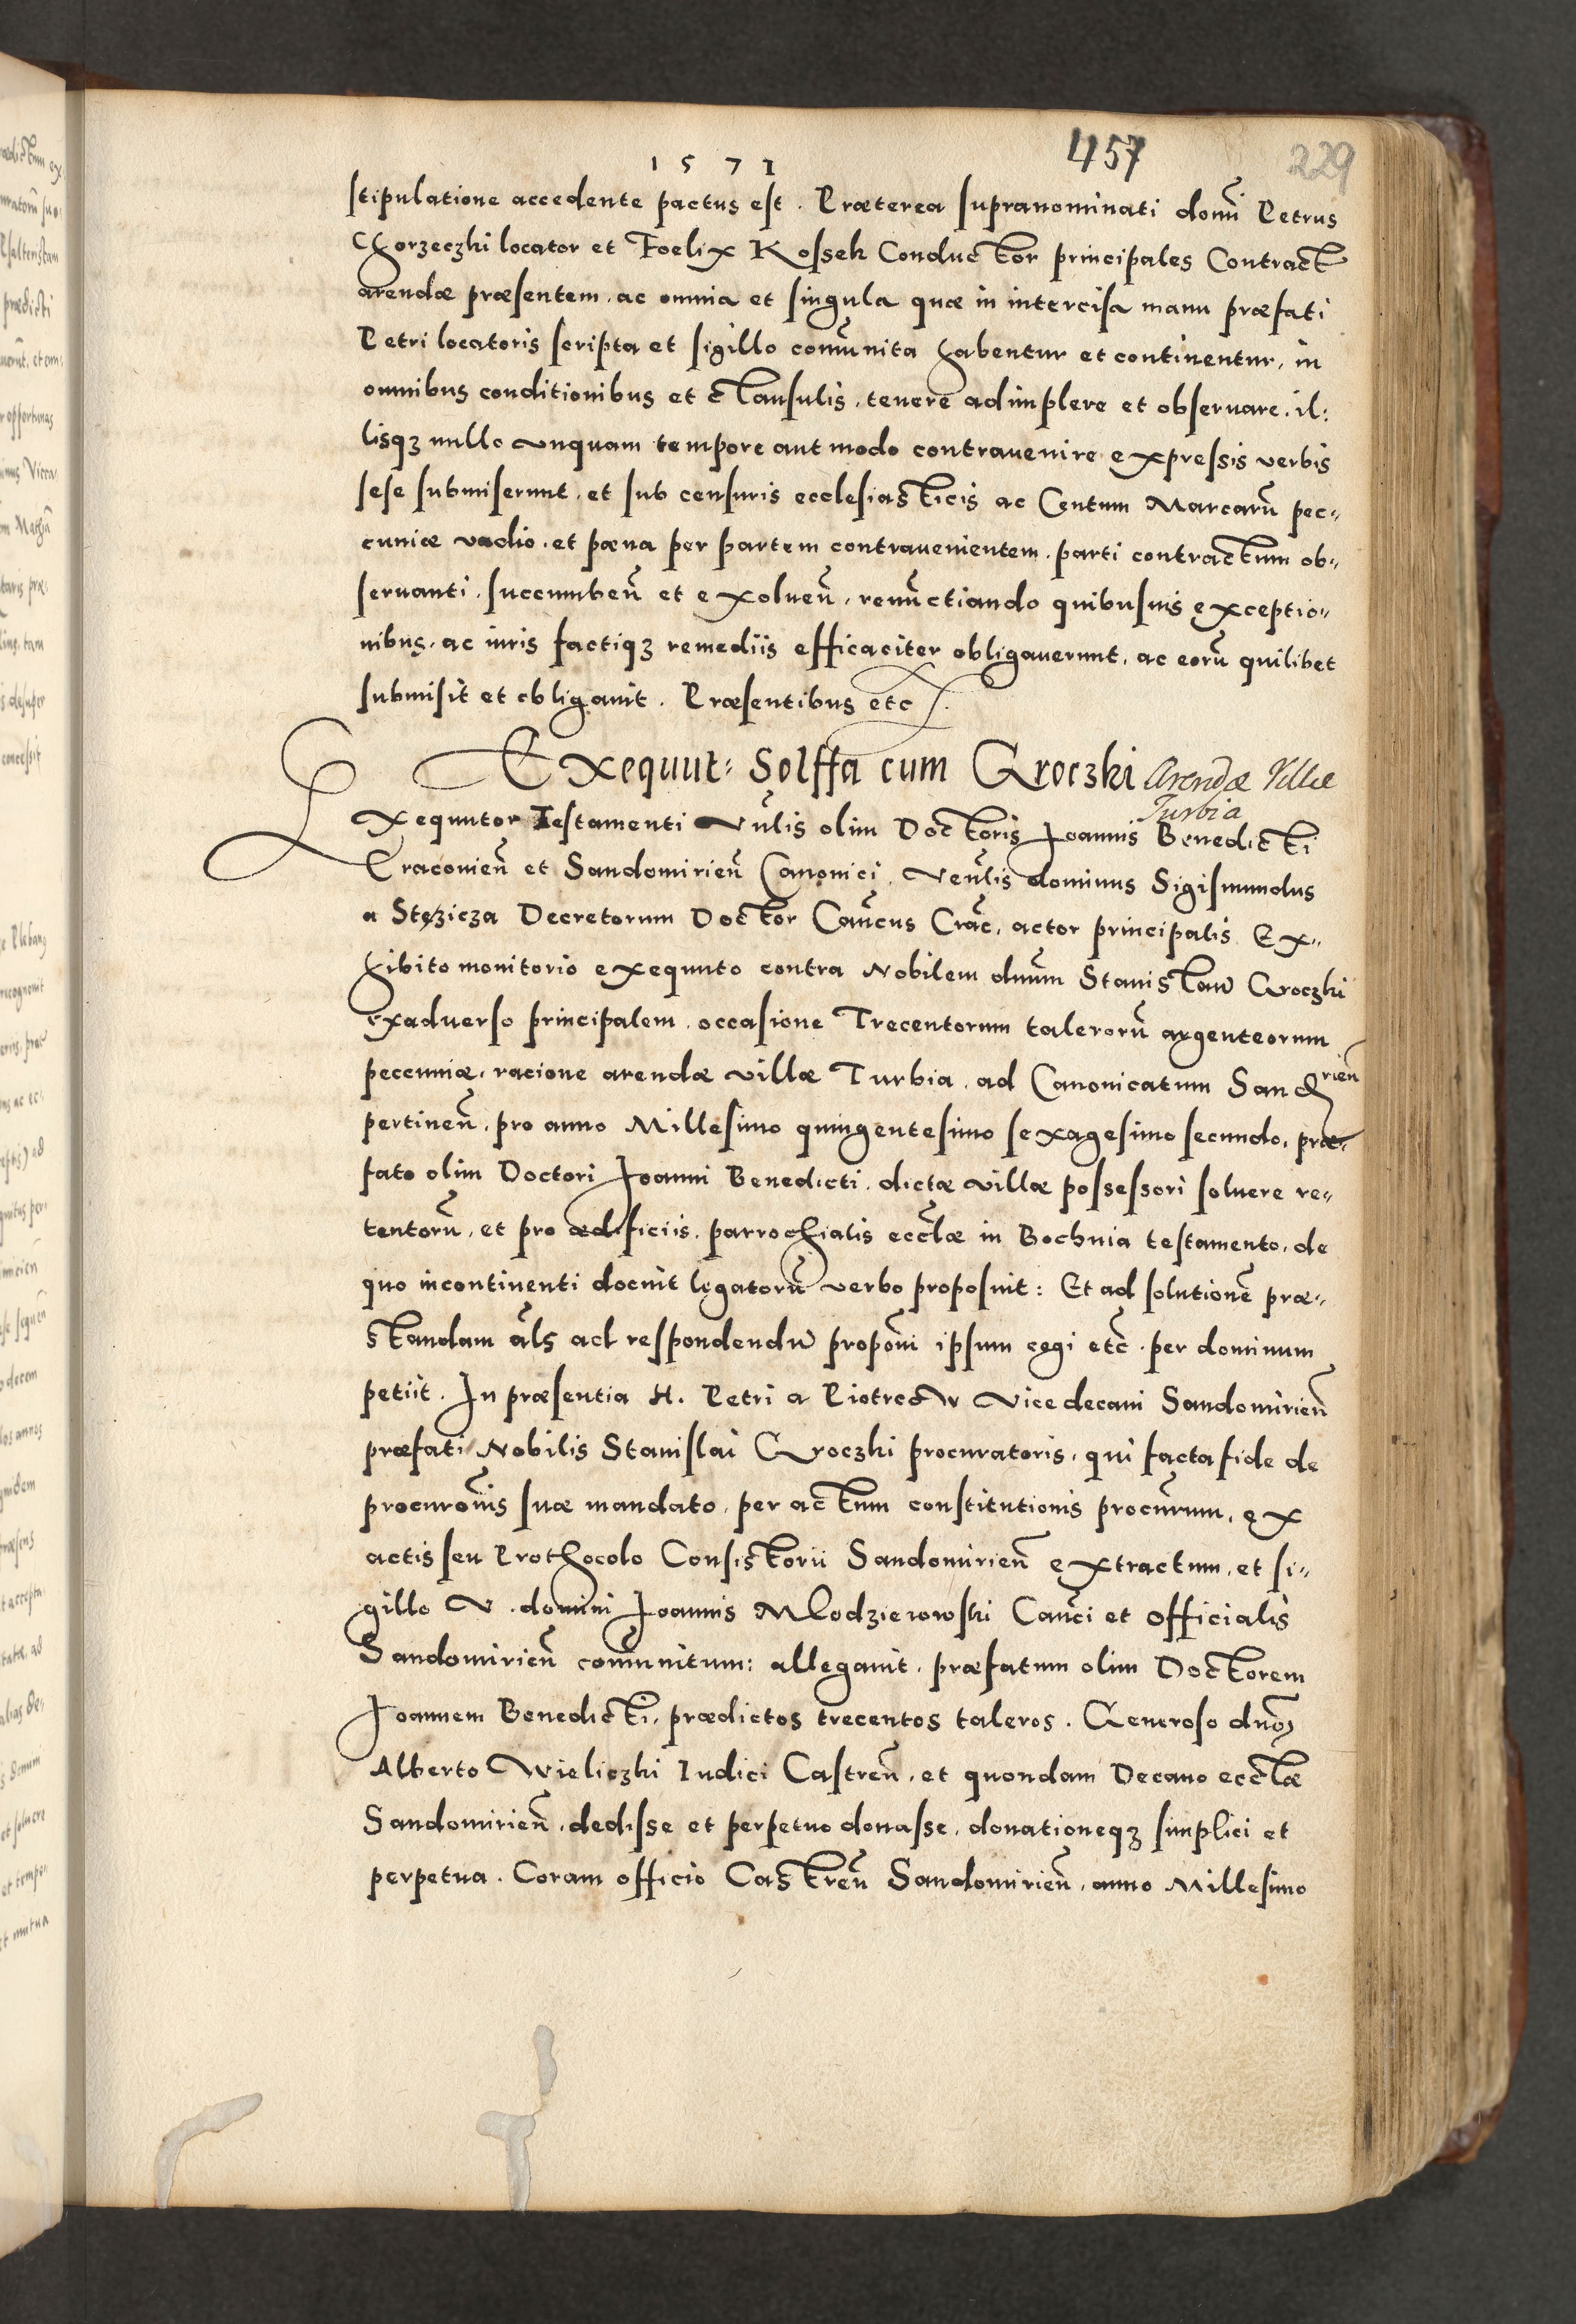 1571
457
229
stipulatione accedente pactus est. Præterea supranominati domī Petrus
Chorzeczki locator et Foelix Kossek Conductor principales Contract
arendæ præsentem, ac omnia et singula quæ in intercisa manu præfati
Petri locatoris scripta et sigillo com̄unita habentur et continentur, in
omnibus conditionibus et clausulis, tenere adimplere et obseruare, il:
lisqз nullo vnquam tempore aut modo contrauenire expressis verbis
sese submiserunt, et sub censuris ecclesiasticis ac Centum Marcarū pec„
cuniæ vadio, et pœna per partem contrauenientem, parti contractum ob„
seruanti, succumbeñ et exolueñ, renūctiando quibusuis exceptio„
nibus, ac iuris factiqз remediis efficaciter obligauerunt, ac eorū quilibet
submisit et obligauit. Præsentibus etc
Exequut: Solffa cum Groczki Arendæ Villæ
Turbia
Exequutor Testamenti Vn̄lis olim Doctoris Joannis Benedicti
Cracouieñ et Sandomirieñ Canonici, Ven̄lis dominus Sigismundus
a Stęzicza Decretorum Doctor Can̄cus Crac̄, actor principalis Ex„
hibito monitorio exequuto contra Nobilem dnum̄ Stanislaū Groczki
exaduerso principalem, occasione Trecentorum talerorū argenteorum
peccuniæ, racione arendæ villæ Turbia, ad Canonicatum Sandrieñ
pertineñ, pro anno Millesimo quingentesimo sexagesimo secundo, præ„
fato olim Doctori Joanni Benedicti, dictæ villæ possessori soluere re„
tentorū, et pro ædificiis, parrochialis eccl̄æ in Bochnia testamento, de
quo incontinenti docuit legatorū verbo proposuit: Et ad solutionē præ„
standam āls ad respondendū propōni ipsum cogi etc̄. per dominum
petiit. In præsentia H. Petri a Piotrcow Vicedecani Sandomirieñ
præfati Nobilis Stanislai Groczki procuratoris, qui facta fide de
procurōnis suæ mandato, per actum constitutionis procūrum, ex
actis seu Prothocolo Consistorii Sandomirieñ extractum, et si„
gillo V. domini Joannis Mlodzieiowski Can̄ci et Officialis
Sandomirieñ com̄unitum: allegauit, præfatum olim Doctorem
Joannem Benedicti, prædictos trecentos taleros. Generoso dn̄o
Alberto Wieliczki Iudici Castreñ, et quondam Decano eccl̄æ
Sandomirieñ, dedisse et perpetuo donasse, donationeqз simplici et
perpetua. Coram officio Castreñ Sandomirieñ, anno Millesimo